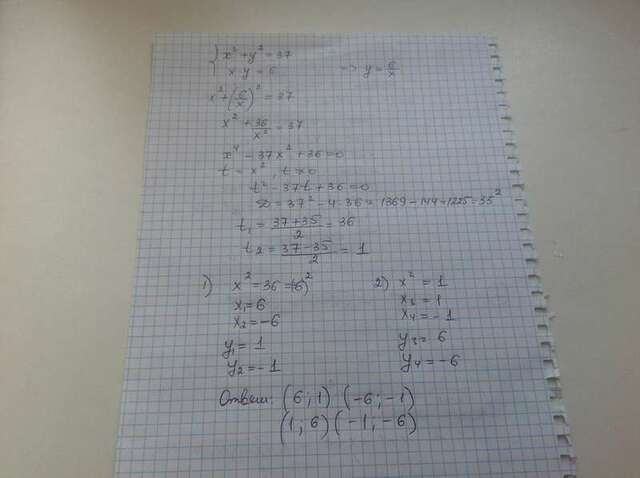 { x² + y² = 37
x · y = 6 => y = 6/x
x² + (6/x)² = 37
x² + 36/x² = 37
x⁴ - 37x² + 36 = 0
t = x², t > 0
t² - 37t + 36 = 0
D = 37² - 4·36 = 1369 - 144 = 1225 = 35²
t₁ = (37+35)/2 = 36
t₂ = (37-35)/2 = 1
1) x² = 36 = (6)² 2) x² = 1
x₁ = 6 x₃ = 1
x₂ = -6 x₄ = -1
y₁ = 1 y₃ = 6
y₂ = -1 y₄ = -6
Ответ: (6; 1) (-6; -1)
(1; 6) (-1; -6)